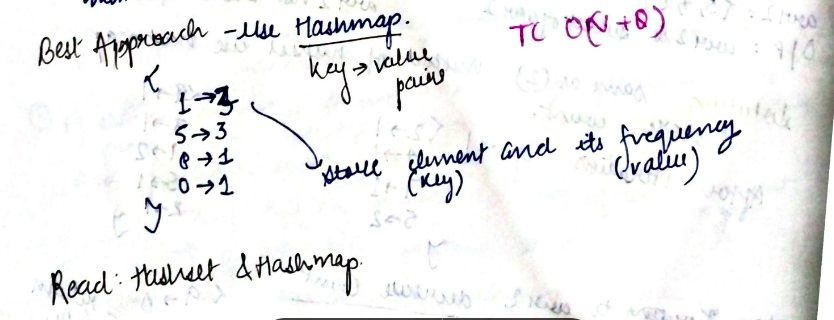 Best Approach - Use Hashmap.
TC O(N+Q)
Key → value
pairs
{
1 → 3
5 → 3
8 → 1
0 → 1
}
store element and its frequency
(key) (value)
Read: Hashset & Hashmap.